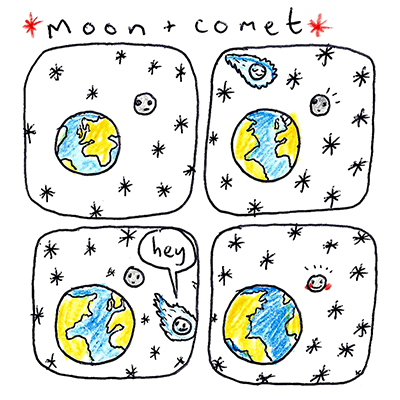 *moon + comet*
hey